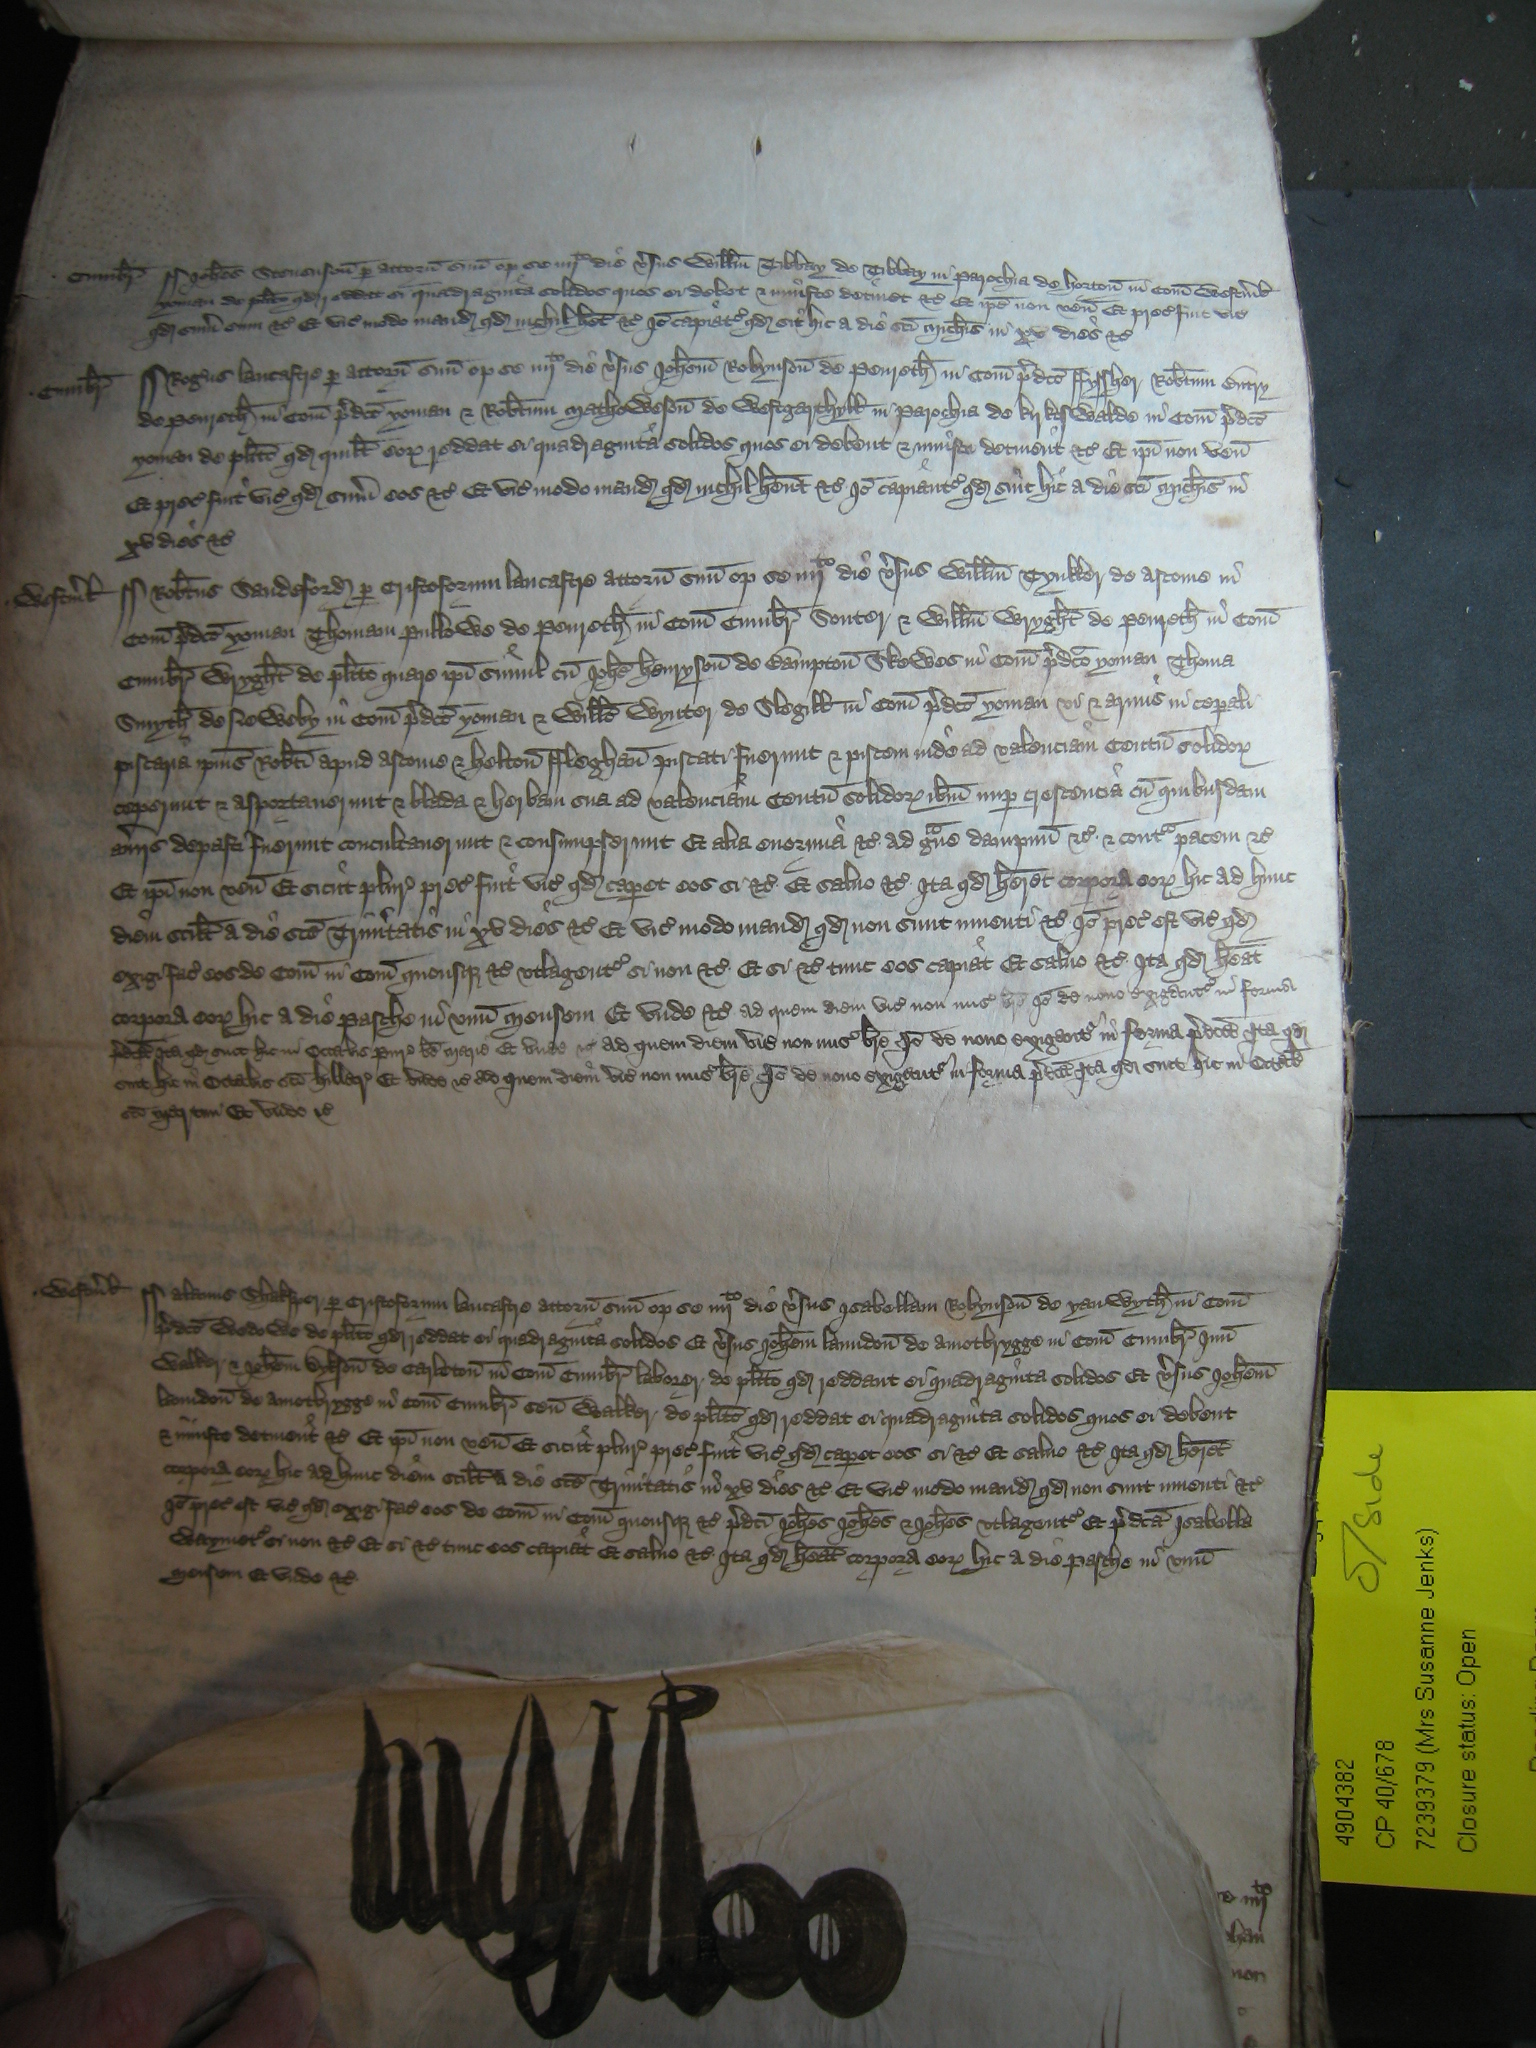 Cumbr̃ Joh̃es Steuenson̄ p attorñ suū op se iiijto die v̉sus Will̃m Tibbay de Tibbay in parochia de horton̄ in Com̃ Westm̃l̃
yoman de pl̃ito qd reddat ei quadraginta solidos quos ei debet & iniuste detinet &c̃ Et ip̃e non veñ Et prec̃ fuit vic̃
qd sum̃ eum &c̃ Et vic̃ modo mand qd nichil het̃ &c̃ Jõ capiat̃ qd sit hic a die sc̃i Mich̃is in xv dies &c̃
Cumbr̃ Rog̃us lancastre p attorñ suū op se iiijto die v̉sus Joh̃em Robynson̄ de Penreth̃ in Com̃ p̃dc̃o ffyssher Rob̃tum Entry
de Penreth̃ in Com̃ p̃dc̃o yoman & Rob̃tum Mathoweson̄ de Westgarthyll̃ in parochia de kirkeswalde in Com̃ p̃dc̃o
yoman de pl̃ito qd quil̃t eoꝝ reddat ei quadraginta solidos quos ei debent & iniuste detinent &c̃ Et ip̃i non veñ
Et prec̃ fuit vic̃ qd sum̃ eos &c̃ Et vic̃ modo mand qd nichil hent̃ &c̃ Jõ capiant̃ qd sint hic a die sc̃i Mich̃is in
xv dies &c̃
Westm̃l̃ Rob̃tus Sandeford p Cristoforum lancastre attorñ suū op se iiijto die v̉sus Will̃m Tynkler de Ascome in
Com̃ p̃dc̃o yoman Thomam Pullowe de Penreth̃ in Com̃ Cumbr̃ Souter & Will̃m Wryght̃ de Penreth̃ in Com̃
Cumbr̃ Wryght̃ de pl̃ito quare ip̃i simul cū Joh̃e henryson̄ de Bampton̄ Skewes in Com̃ p̃dc̃o yoman Thoma
Smyth̃ de Neweby in Com̃ p̃dc̃o yoman & Will̃o Wynter de Slegill̃ in Com̃ p̃dc̃o yoman vi & armis in sep̃ali
piscaria ip̃ius Rob̃ti apud Ascome & helton̄ ffleghan̄ piscati fuerunt & piscem inde ad valenciam Centū solidoꝝ
ceperunt & asportauerunt & blada & herbam sua ad valenciam Centū solidoꝝ ib̃m nup crescencia cū quibusdam
aủiis depasti fuerunt conculcauerunt & consumpserunt Et alia enormia &c̃ ad g̃ue dampnū &c̃ & contra pacem &c̃
Et ip̃i non veñ Et sicut plur̃ prec̃ fuit vic̃ qd caperet eos si &c̃ Et saluo &c̃ Ita qd heret̃ corpora eoꝝ hic ad hunc
diem scil̃t a die sc̃e Trinitatis in xv dies &c̃ Et vic̃ modo mand qd non sunt inuenti &c̃ Jõ prec̃ est vic̃ qd
exigi fac̃ eos de Com̃ in Com̃ quousqꝫ &c̃ vtlagent̃ si non &c̃ Et si &c̃ tunc eos capiat Et saluo &c̃ Ita qd heat̃
corpora eoꝝ hic a die Pasche in vnū Mensem Et vnde &c̃ ad quem diem vic̃ non mis̃ br̃e Jõ de nouo exigant̃ in forma
p̃dc̃a Ita qd sint hic in Octab̃ Pur̃ b̃e Marie Et vnde &c̃ ad quem diem vic̃ non mis̃ br̃e Jõ de nouo exigant̃ in forma p̃dc̃a Ita qd
sint hic in Octabis sc̃i hillar̃ Et vnde &c̃ ad quem diem vic̃ non mis̃ br̃e Jõ de nouo exigant̃ in forma p̃dc̃a Ita qd sint hic in Octab̃
sc̃i Martini Et vnde &c̃
Westm̃l̃ Alanus Shaksper p Cristoforum lancastre attorñ suū op se iiijto die v̉sus Isabellam Robynson̄ de yanwyth̃ in Com̃
p̃dc̃o Wedowe de pl̃ito qd reddat ei quadraginta solidos Et v̉sus Joh̃em lamdon̄ de Amotbrygge in Com̃ Cumbr̃ Juñ
Walker & Joh̃em Dykson̄ de Carleton̄ in Com̃ Cumbr̃ laborer de pl̃ito qd reddant ei quadraginta solidos Et v̉sus Joh̃em
lamdon̄ de Amotbrygge in Com̃ Cumbr̃ Señ Walker de pl̃ito qd reddat ei quadraginta solidos quos ei debent
& iniuste detinent &c̃ Et ip̃i non veñ Et sicut plur̃ prec̃ fuit vic̃ qd caperet eos si &c̃ Et saluo &c̃ Ita qd heret̃
corpora eoꝝ hic ad hunc diem scil̃t a die sc̃e Trinitatis in xv dies &c̃ Et vic̃ modo mand qd non sunt inuenti &c̃
Jõ prec̃ est vic̃ qd exigi fac̃ eos de Com̃ in Com̃ quousqꝫ &c̃ p̃dc̃i Joh̃es Joh̃es & Joh̃es vtlagent̃ Et p̃dc̃a Isabella
Waymet̃ si non &c̃ Et si &c̃ tunc eos capiat Et saluo &c̃ Ita qd heat̃ corpora eoꝝ hic a die Pasche in vnū
Mensem Et vnde &c̃
4904382
CP 40/678
7239379 (Mrs Susanne Jenks)
Closure status: Open